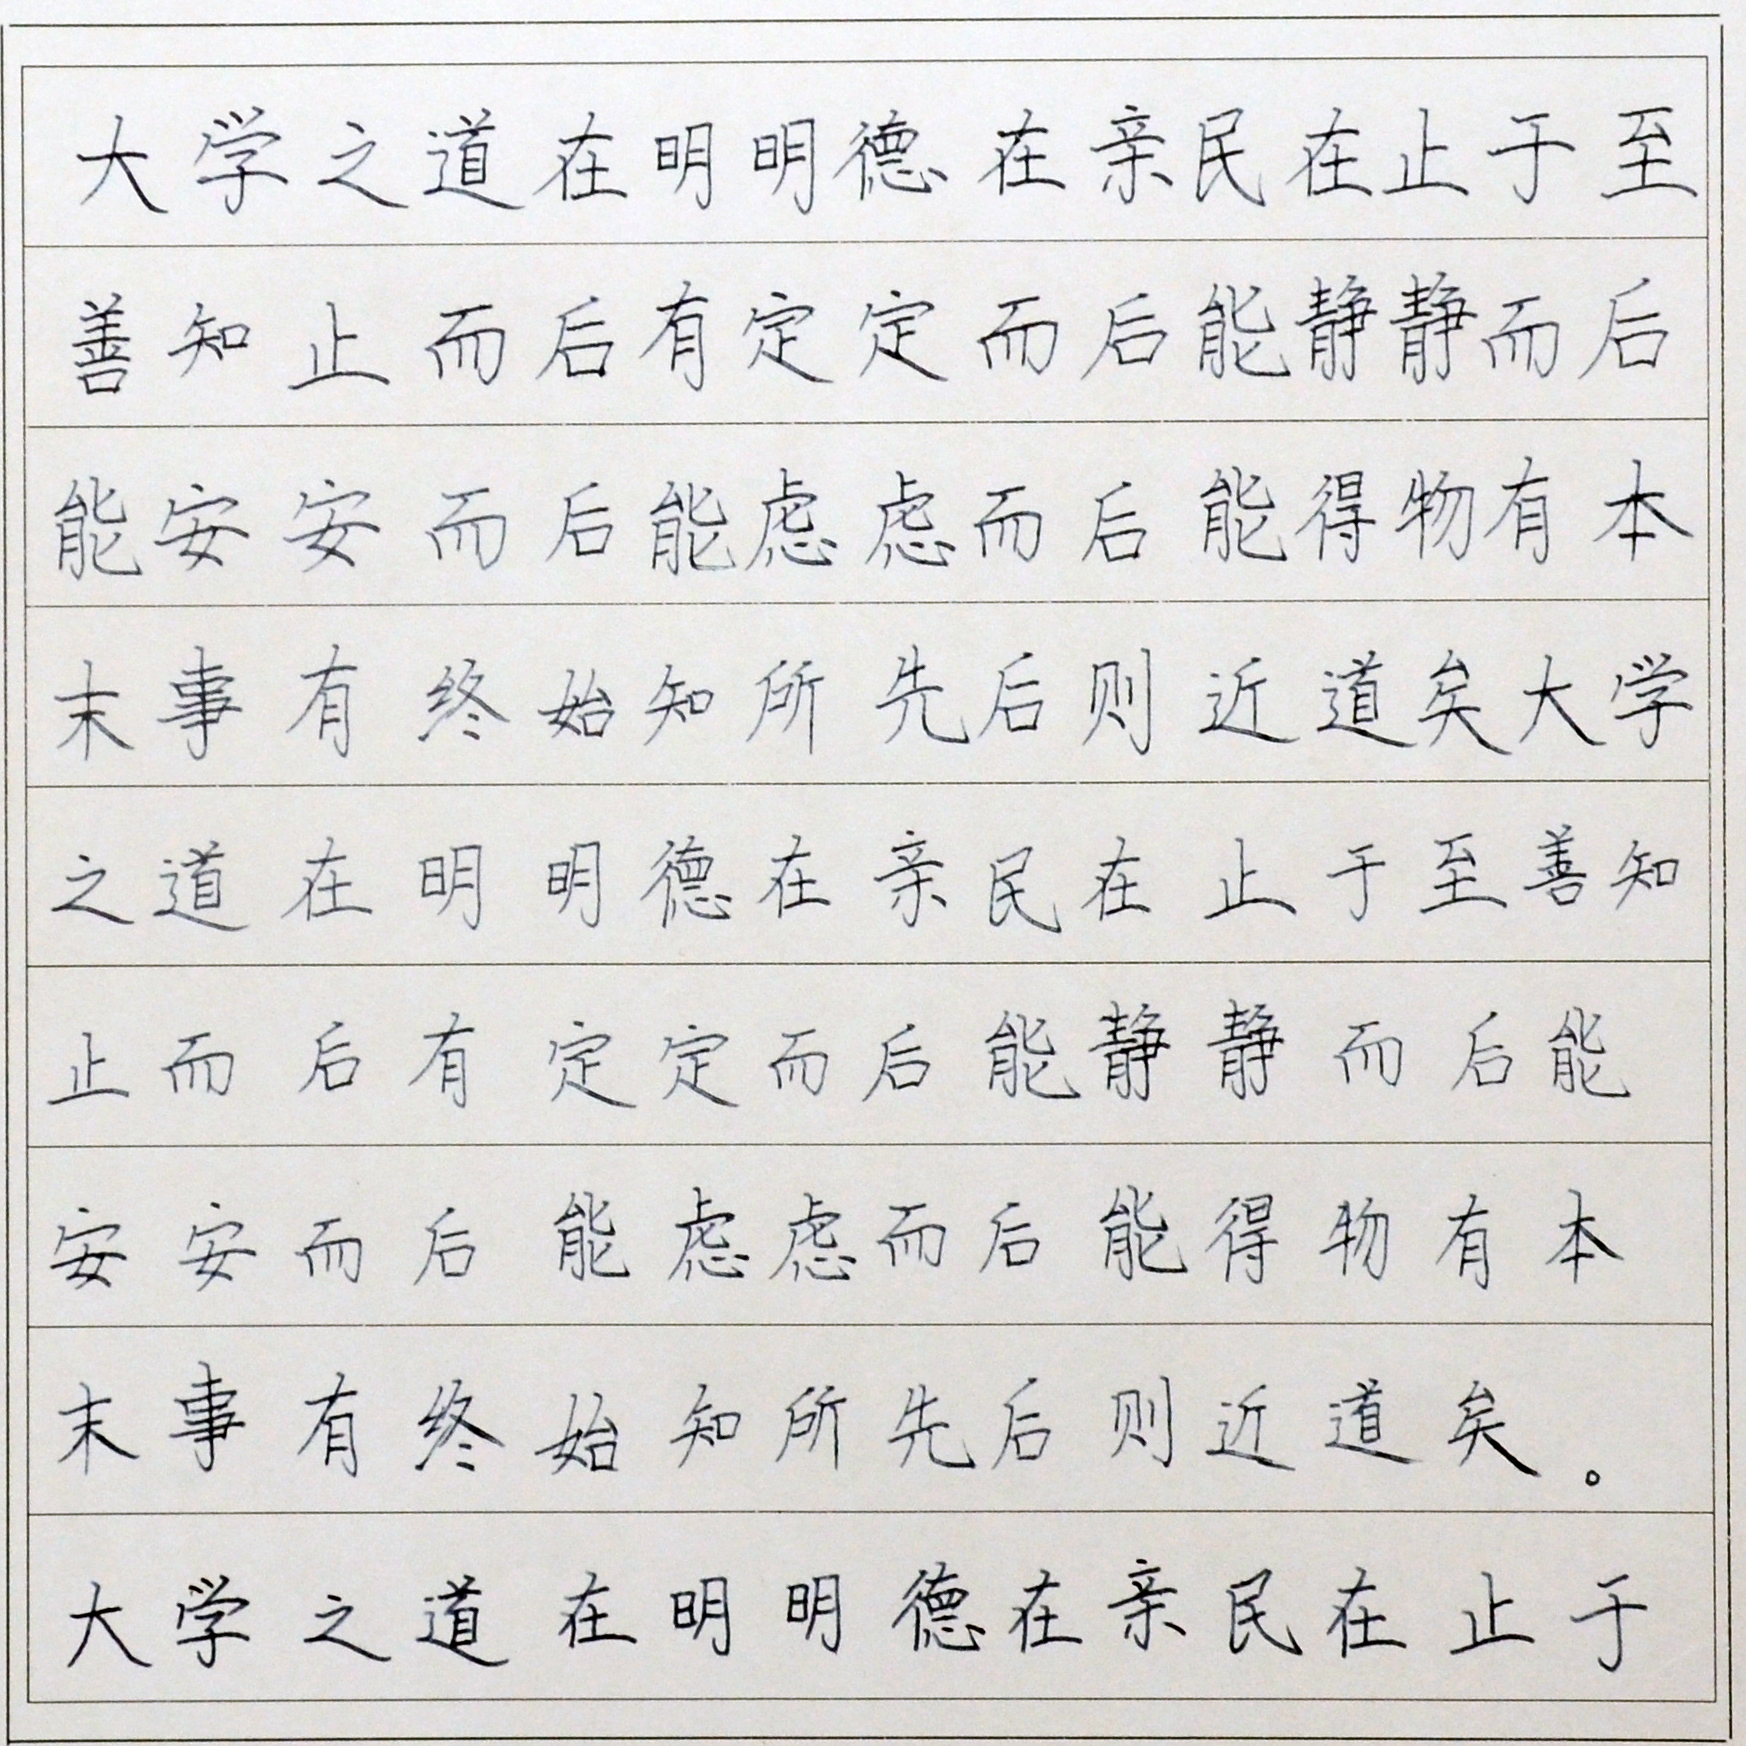 大学之道在明明德在亲民在止于至
善知止而后有定定而后能静静而后
能安安而后能虑虑而后能得物有本
末事有终始知所先后则近道矣大学
之道在明明德在亲民在止于至善知
止而后有定定而后能静静而后能
安安而后能虑虑而后能得物有本
末事有终始知所先后则近道矣。
大学之道在明明德在亲民在止于